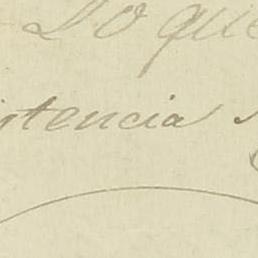 Lo que
istencia